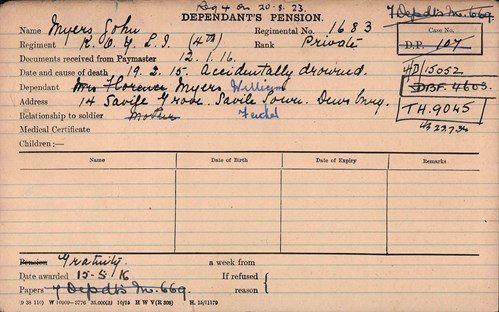 Reg 4 on 20.8.23.
DEPENDANT'S PENSION.
7 Depdts No. 669.
Name Myers John Regimental No. 1683
Case No.
Regiment K.O.Y.L.I. (4th) Rank Private
D.P. 107
Documents received from Paymaster 12.1.16.
4D/15052
Date and cause of death 19.2.15. Accidentally drowned.
DBF. 4603.
Dependant Mrs Florence Myers, William
Address 14 Savile Grove, Savile Town, Dewsbury.
TH.9045
Relationship to soldier Mother Father
Medical Certificate
Children:—
Name Date of Birth Date of Expiry Remarks
Pension Gratuity. a week from
Date awarded 15-5-16 If refused
Papers 7 Depdts No. 669. reason